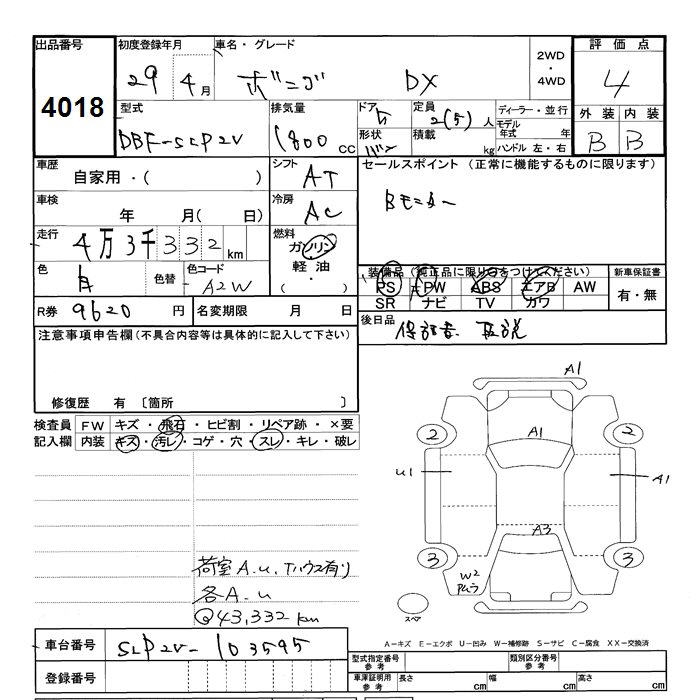 出品番号 初度登録年月 車名・グレード 2WD・4WD 評価点
4018 29 4月 ボンゴ DX 4
型式 排気量 ドア 定員 ディーラー・並行 外装 内装
DBF-SLP2V 1800cc 5 2(5)人 モデル年式 年 B B
形状 バン 積載 kg ハンドル 左・右
車歴 シフト セールスポイント (正常に機能するものに限ります)
自家用・( ) AT
Bモニター
車検 年 月( 日) 冷房 AC
走行 4万3千332km 燃料 ガソリン・軽油・( )
色 白 色替 色コード A2W
装備品 (純正品に限り○をつけてください) 新車保証書
PS PW ABS エアB AW 有・無
SR ナビ TV カワ
R券 9620円 名変期限 月 日
後日品 保証書 取説
注意事項申告欄(不具合内容等は具体的に記入して下さい)
修復歴 有 〔箇所 〕
検査員 FW キズ・飛石・ヒビ割・リペア跡・×要
記入欄 内装 キズ・汚レ・コゲ・穴・スレ・キレ・破レ
A1
2 A1 2
U1 A1
3 A3 3
W2
Pムラ
スペア
荷室A.U.Tハウス有り
各A.U
Q43,332km
A-キズ E-エクボ U-凹み W-補修跡 S-サビ C-腐食 XX-交換済
車台番号 SLP2V-103595
登録番号
型式指定番号 参考 類別区分番号 参考
車庫証明用 参考 長さ cm 幅 cm 高さ cm